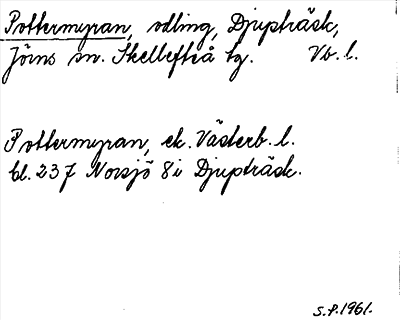 Pottermyran, odling, Djupträsk,
Jörns sn. Skellefteå tg. Vb. l.
Pottermyran, ek. Västerb. l.
bl. 237 Norsjö 8i Djupträsk.
S.P. 1961.